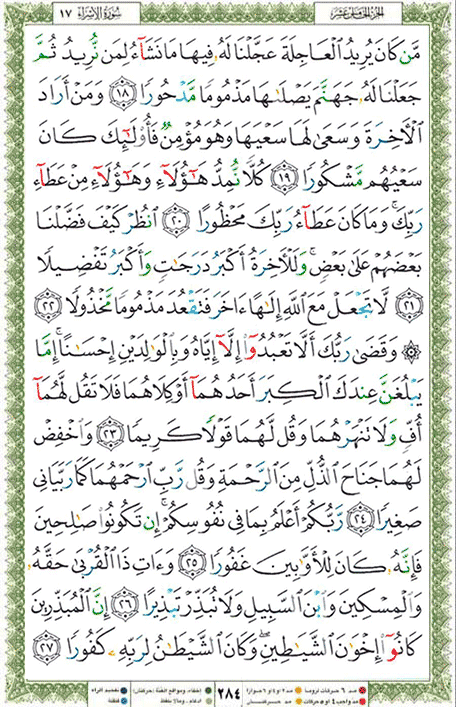 سُورَةُ الإِسْرَاءِ ١٧ الجزء الخامس عشر
مَّن كَانَ يُرِيدُ ٱلْعَاجِلَةَ عَجَّلْنَا لَهُۥ فِيهَا مَا نَشَآءُ لِمَن نُّرِيدُ ثُمَّ
جَعَلْنَا لَهُۥ جَهَنَّمَ يَصْلَىٰهَا مَذْمُومًا مَّدْحُورًا ١٨ وَمَنْ أَرَادَ
ٱلْءَاخِرَةَ وَسَعَىٰ لَهَا سَعْيَهَا وَهُوَ مُؤْمِنٌ فَأُو۟لَٰٓئِكَ كَانَ
سَعْيُهُم مَّشْكُورًا ١٩ كُلًّا نُّمِدُّ هَٰٓؤُلَآءِ وَهَٰٓؤُلَآءِ مِنْ عَطَآءِ
رَبِّكَ ۚ وَمَا كَانَ عَطَآءُ رَبِّكَ مَحْظُورًا ٢٠ ٱنظُرْ كَيْفَ فَضَّلْنَا
بَعْضَهُمْ عَلَىٰ بَعْضٍ ۚ وَلَلْءَاخِرَةُ أَكْبَرُ دَرَجَٰتٍ وَأَكْبَرُ تَفْضِيلًا
٢١ لَّا تَجْعَلْ مَعَ ٱللَّهِ إِلَٰهًا ءَاخَرَ فَتَقْعُدَ مَذْمُومًا مَّخْذُولًا ٢٢
۞ وَقَضَىٰ رَبُّكَ أَلَّا تَعْبُدُوٓا۟ إِلَّآ إِيَّاهُ وَبِٱلْوَٰلِدَيْنِ إِحْسَٰنًا ۚ إِمَّا
يَبْلُغَنَّ عِندَكَ ٱلْكِبَرَ أَحَدُهُمَآ أَوْ كِلَاهُمَا فَلَا تَقُل لَّهُمَآ
أُفٍّ وَلَا تَنْهَرْهُمَا وَقُل لَّهُمَا قَوْلًا كَرِيمًا ٢٣ وَٱخْفِضْ
لَهُمَا جَنَاحَ ٱلذُّلِّ مِنَ ٱلرَّحْمَةِ وَقُل رَّبِّ ٱرْحَمْهُمَا كَمَا رَبَّيَانِى
صَغِيرًا ٢٤ رَّبُّكُمْ أَعْلَمُ بِمَا فِى نُفُوسِكُمْ ۚ إِن تَكُونُوا۟ صَٰلِحِينَ
فَإِنَّهُۥ كَانَ لِلْأَوَّٰبِينَ غَفُورًا ٢٥ وَءَاتِ ذَا ٱلْقُرْبَىٰ حَقَّهُۥ
وَٱلْمِسْكِينَ وَٱبْنَ ٱلسَّبِيلِ وَلَا تُبَذِّرْ تَبْذِيرًا ٢٦ إِنَّ ٱلْمُبَذِّرِينَ
كَانُوٓا۟ إِخْوَٰنَ ٱلشَّيَٰطِينِ ۖ وَكَانَ ٱلشَّيْطَٰنُ لِرَبِّهِۦ كَفُورًا ٢٧
٢٨٤
مد ٦ حركات لزوماً مد ٢ أو ٤ أو ٦ جوازاً إخفاء، ومواقع الغنة (حركتان) تفخيم الراء
مد واجب ٤ أو ٥ حركات مد حركتان إدغام، وما لا يلفظ قلقلة